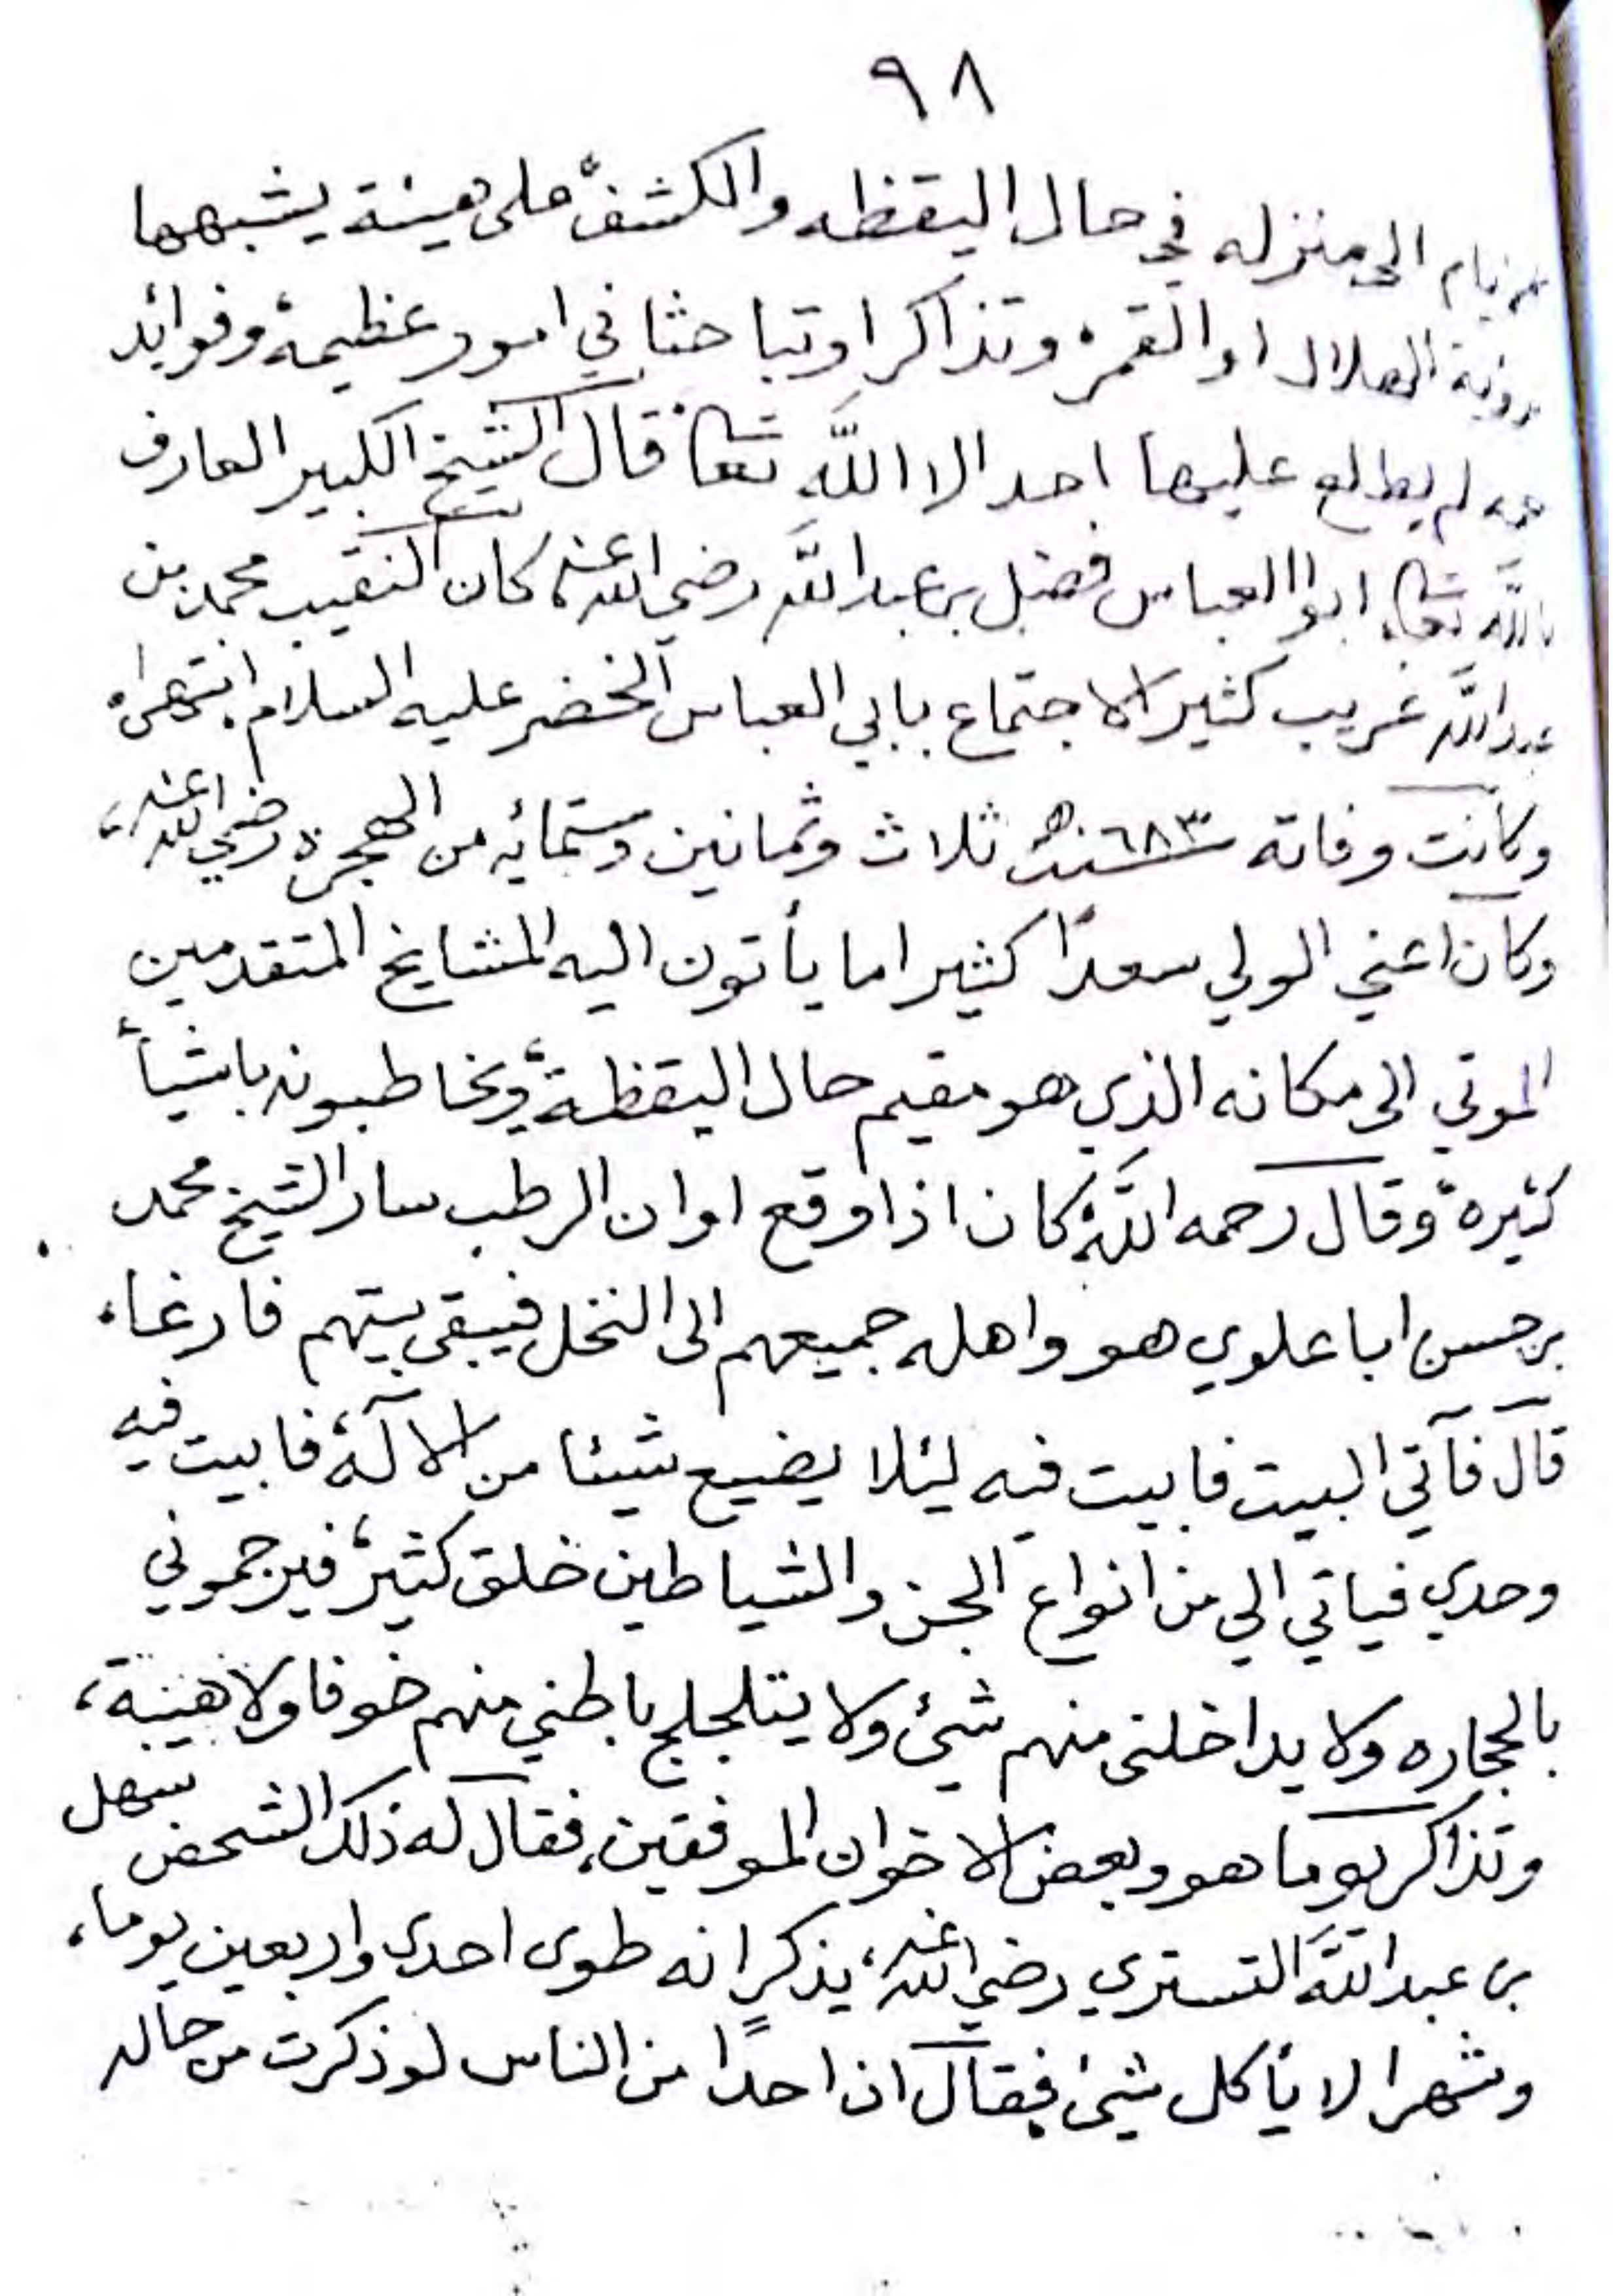 ٩٨
الى منزله في حال اليقظه والكشف على هيئة يشبهها
رؤية الهلال او القمر، وتذاكرا وتباحثا في امور عظيمة وفوائد
لم يطلع عليها احد الا الله تعا، قال الشيخ الكبير العارف
بالله تعا، ابوا العباس فضل بن عبد الله رضي الله عنه، كان النقيب محمد بن
عبد الله غريب كثير الاجتماع بابي العباس الخضر عليه السلام، انتهى،
وكانت وفاته سنة ٦٨٣ ه ثلاث وثمانين وستمائه من الهجرة رضي الله عنه،
وكان اعني الولي سعدًا كثيرا ما يأتون اليه المشايخ المتقدمين
الموتي الى مكانه الذي هو مقيم حال اليقظة، ويخاطبونه باشيأ
كثيرة، وقال رحمه الله، كان اذا وقع اوان الرطب سار الشيخ محمد
بن حسن ابا علوي هو واهله جميعهم الى النخل فيبقى بيتهم فارغا،
قال فآتي البيت فابيت فيه ليئلا يضيع شيئا من الآلة، فابيت فيه
وحدي فياتي الي من انواع الجن والشياطين خلق كثير، فيرجموني
بالحجاره ولا يداخلنى منهم شيئ ولا يتلجلج باطني منهم خوفا ولا هيبة،
وتذاكر يوما هو وبعض الاخوان الموفقين، فقال له ذلك الشخص سهل
بن عبد الله التستري رضي الله عنه، يذكر انه طوى احدى واربعين يوما،
وشهرا لا يأكل شيئ فقال ان احدًا من الناس لو ذكرت من حاله